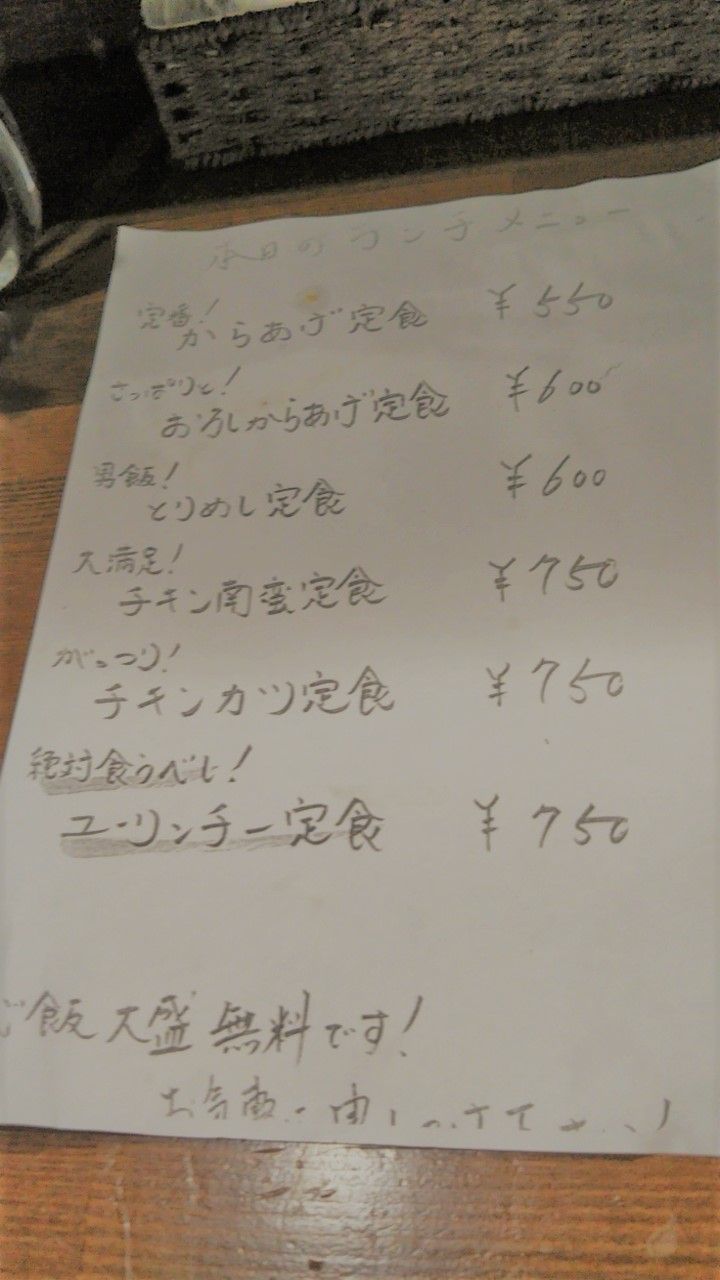 本日のランチメニュー
定番!
からあげ定食 ¥550
さっぱりと!
おろしからあげ定食 ¥600
男飯!
とりめし定食 ¥600
大満足!
チキン南蛮定食 ¥750
がっつり!
チキンカツ定食 ¥750
絶対食うべし!
ユーリンチー定食 ¥750
ご飯大盛無料です!
お気軽に申し